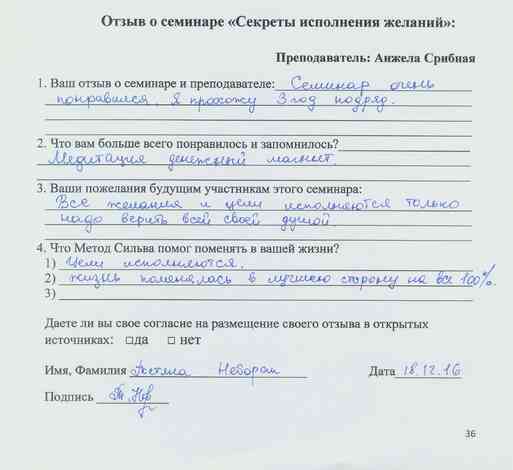 Отзыв о семинаре «Секреты исполнения желаний»:
Преподаватель: Анжела Срибная
1. Ваш отзыв о семинаре и преподавателе: Семинар очень
понравился, я прохожу 3 год подряд.
2. Что вам больше всего понравилось и запомнилось?
Медитация денежный магнит.
3. Ваши пожелания будущим участникам этого семинара:
Все желания и цели исполняются только
надо верить всей своей душой
4. Что Метод Сильва помог поменять в вашей жизни?
1) Цели исполняются.
2) жизнь поменялась в лучшею сторону на все 100%.
3)
Даете ли вы свое согласие на размещение своего отзыва в открытых
источниках: □да □ нет
Имя, Фамилия
Дата 18.12.16
Подпись
36